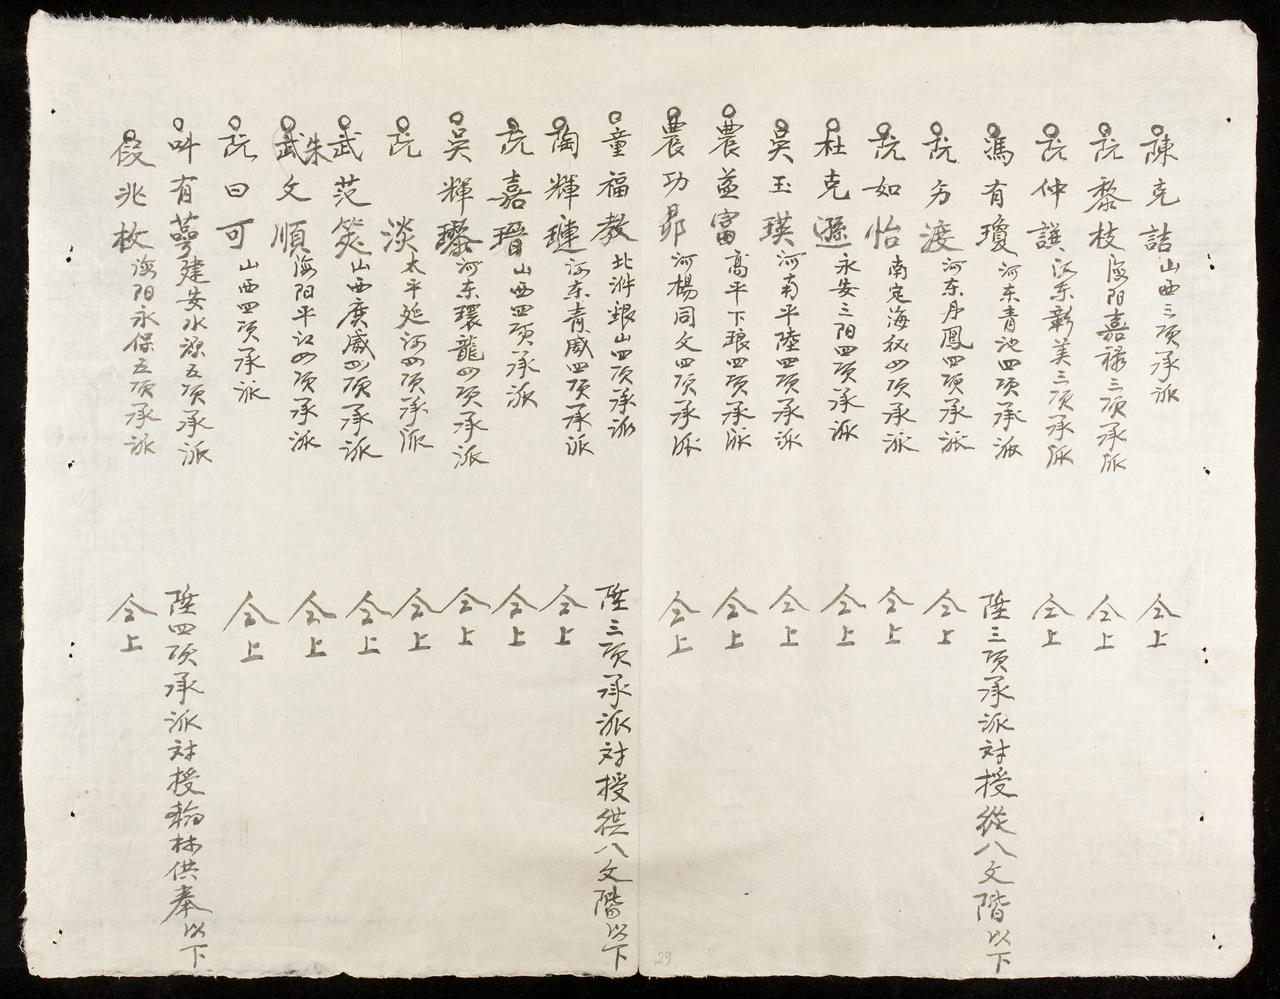 陳克詰山西三項承派 仝上
阮黎枝海陽嘉祿三項承派 仝上
阮仲譔河東彰美三項承派 仝上
馮有瓊河東青池四項承派 陞三項承派対授從八文階以下
阮方渡河東丹鳳四項承派 仝上
阮如怡南定海後四項承派 仝上
杜克遜永安三陽四項承派 仝上
吳玉瑛河南平陸四項承派 仝上
農益富高平下琅四項承派 仝上
農功昴河楊同文四項承派 仝上
童福教北𣴓銀山四項承派 陞三項承派対授從八文階以下
陶輝璉河东青威四項承派 仝上
阮嘉瑨山西四項承派 仝上
吳輝璨河东環龍四項承派 仝上
阮淡太平延河四項承派 仝上
武范筵山西廣威四項承派 仝上
武朱文順海阳平江四項承派 仝上
阮曰可山西四項承派 仝上
叫有蕚建安水源五項承派 陞四項承派対授翰林供奉以下
段兆枚海阳永保五項承派 仝上
29